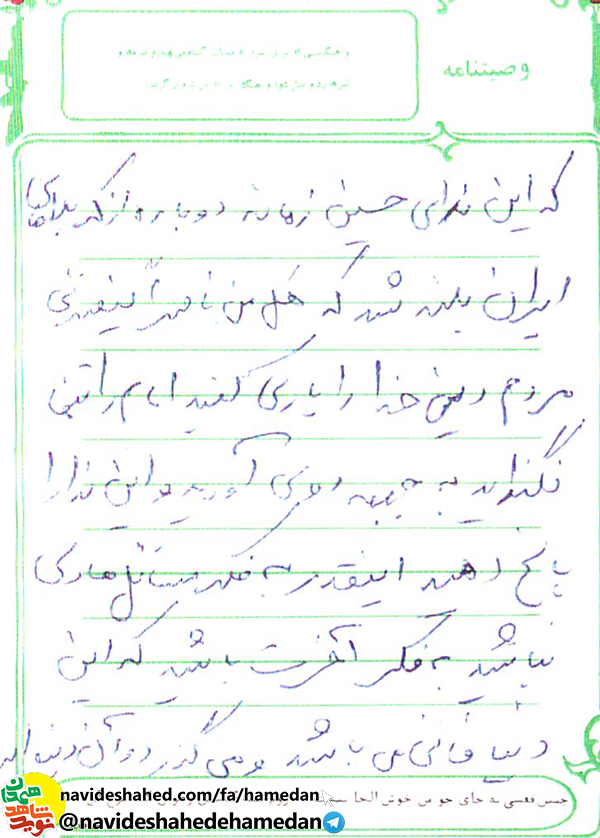 وصیتنامه
که این ندای حسین زمانه دوباره از کربلای
ایران بلند شد که هل من ناصراً ینصرنی
مردم دین خدا را یاری کنید امام را تنها
نگذارید به جبهه روی آورید و این ندا را
پاسخ دهید اینقدر به فکر مسائل مادی
نباشید به فکر آخرت باشید که این
دنیا فانی می باشد و می گذرد و آن دنیا
navideshahed.com/fa/hamedan
@navideshahedehamedan
نوید شاهد همدان